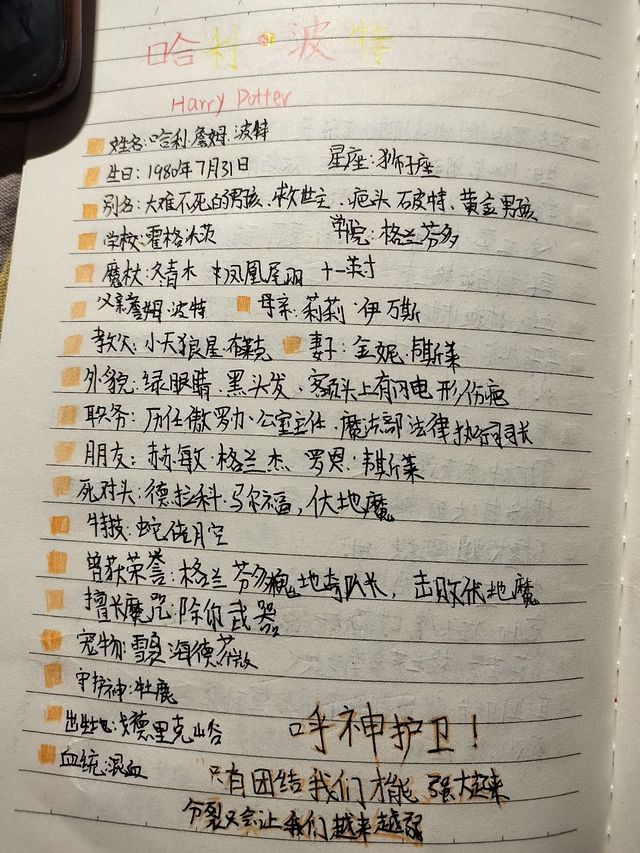 哈利·波特
Harry Potter
姓名:哈利.詹姆.波特
生日:1980年7月31日 星座:狮子座
别名:大难不死的男孩、救世主、疤头 石皮特、黄金男孩
学校:霍格沃茨 学院:格兰芬多
魔杖:冬青木 凤凰尾羽 十一英寸
父亲:詹姆.波特 母亲:莉莉·伊万斯
教父:小天狼星·布莱克 妻子:金妮.韦斯莱
外貌:绿眼睛、黑头发、额头上有闪电形伤疤
职务:历任傲罗办公室主任、魔法部法律执行司司长
朋友:赫敏·格兰杰 罗恩.韦斯莱
死对头:德拉科.马尔福,伏地魔
特技:蛇佬腔
曾获荣誉:格兰芬多魁地奇队长,击败伏地魔
擅长魔咒:除你武器
宠物:雪鸮海德薇
守护神:牡鹿
出生地:戈德里克山谷
血统:混血
呼神护卫!
只有团结我们才能强大起来
分裂只会让我们越来越弱